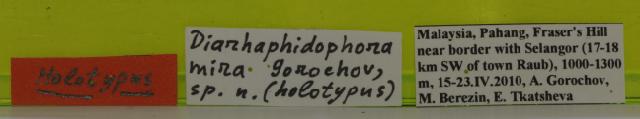 Holotypus
Diarhaphidophora
mira Gorochov,
sp. n. (holotypus)
Malaysia, Pahang, Fraser's Hill
near border with Selangor (17-18
km SW of town Raub), 1000-1300
m, 15-23.IV.2010, A. Gorochov,
M. Berezin, E. Tkatsheva